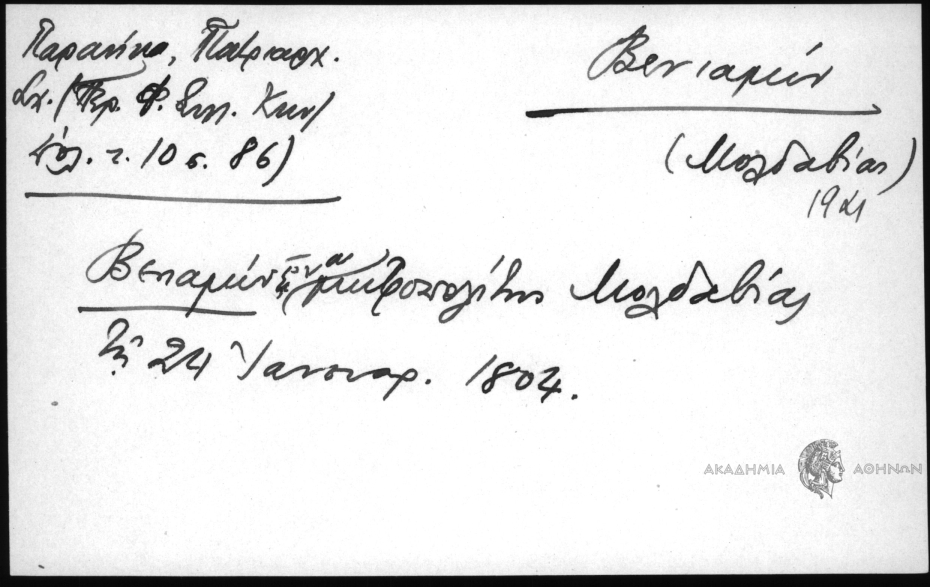 Παρανίκα, Πατριαρχ.
Σχ. (Περ. Φ. Συλ. Κων/
πόλ. τ. 10 σ. 86)
Βενιαμίν
(Μολδαβίας)
Βενιαμίν μητροπολίτης Μολδαβίας
τῇ 24 Ἰανουαρ. 1804.
ΑΚΑΔΗΜΙΑ ΑΘΗΝΩΝ